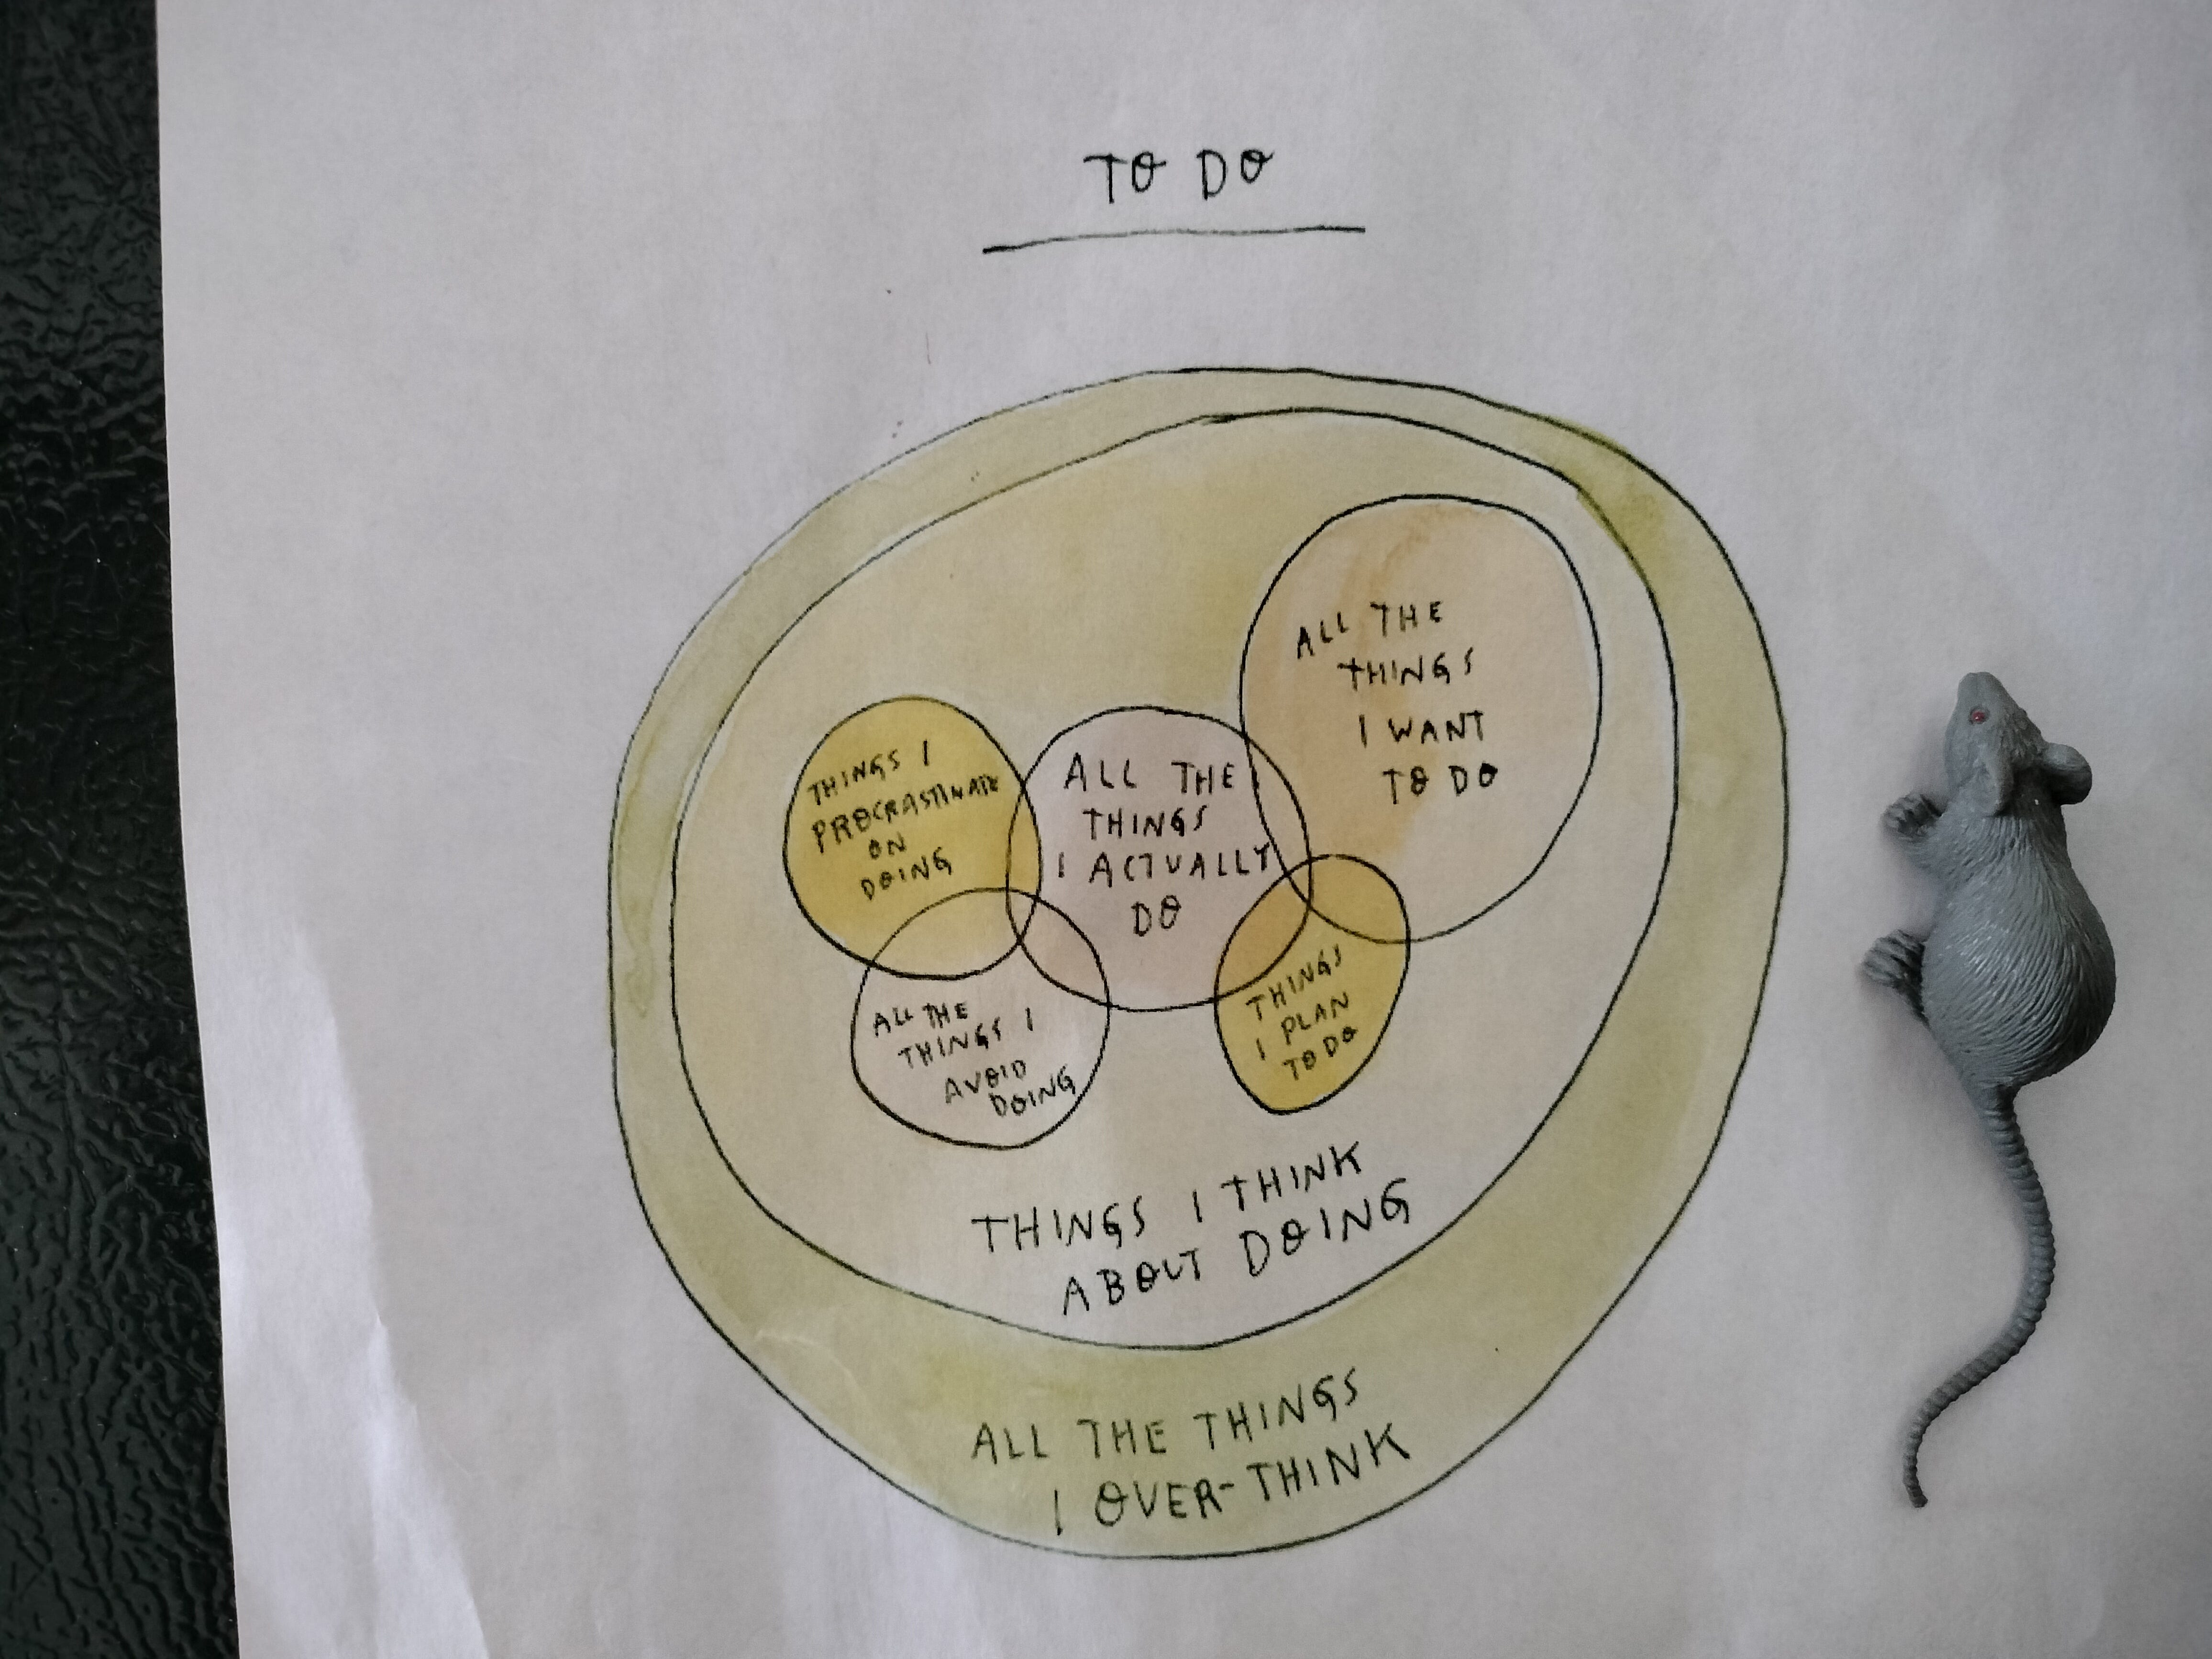 TO DO
ALL THE
THINGS
I WANT
TO DO
THINGS I
PROCRASTINATE
ON
DOING
ALL THE
THINGS
I ACTUALLY
DO
ALL THE
THINGS I
AVOID
DOING
THINGS
I PLAN
TO DO
THINGS I THINK
ABOUT DOING
ALL THE THINGS
I OVER-THINK